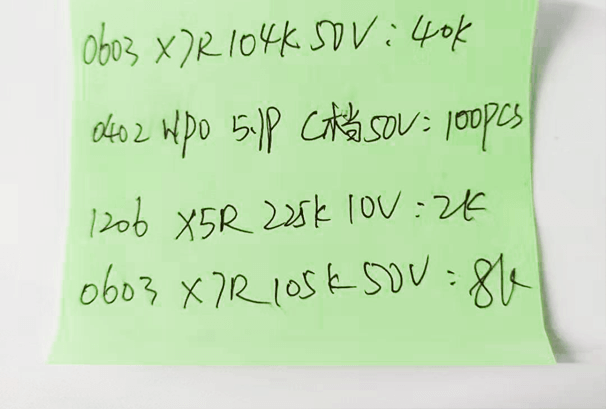 0603 X7R 104K 50V: 40K
0402 NPO 5.1P C档 50V: 100PCS
1206 X5R 225K 10V: 2K
0603 X7R 105K 50V: 8K